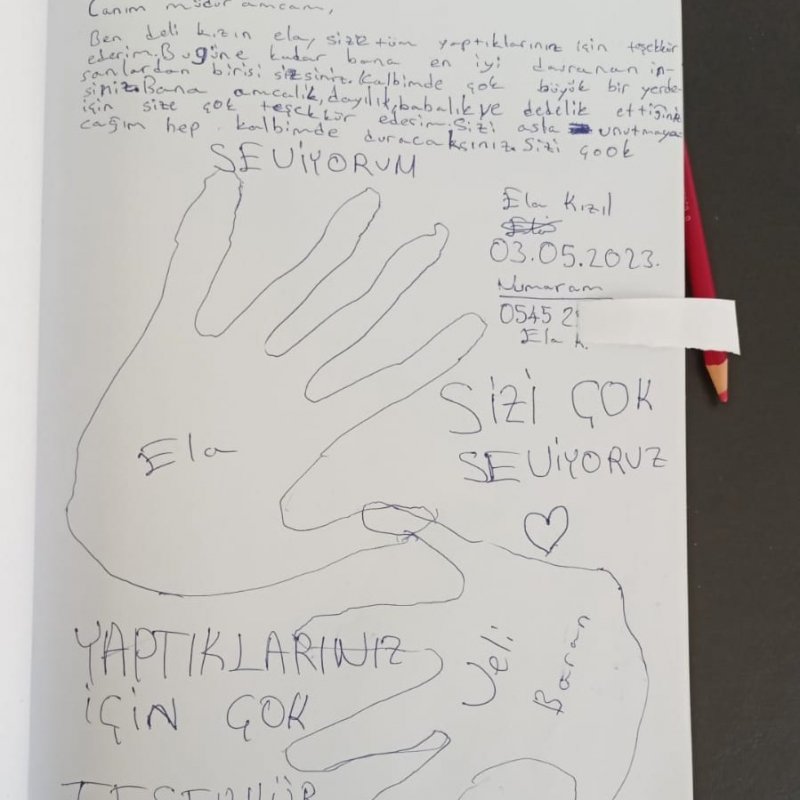 Canım müdür amcam,
Ben deli kızın ela, size tüm yaptıklarınız için teşekkür
ederim. Bugüne kadar bana en iyi davranan in-
sanlardan birisi sizsiniz. Kalbimde çok büyük bir yerde-
siniz. Bana amcalık, dayılık, babalık ve dedelik ettiğiniz
için size çok teşekkür ederim. Sizi asla unutmaya-
cağım hep kalbimde duracaksınız. Sizi çook
SEVİYORUM
Ela Kızıl
03.05.2023.
Numaram
0545 2
Ela K.
SİZİ ÇOK
SEVİYORUZ
Ela
YAPTIKLARINIZ
İÇİN ÇOK
TEŞEKKÜR
Veli
Baran